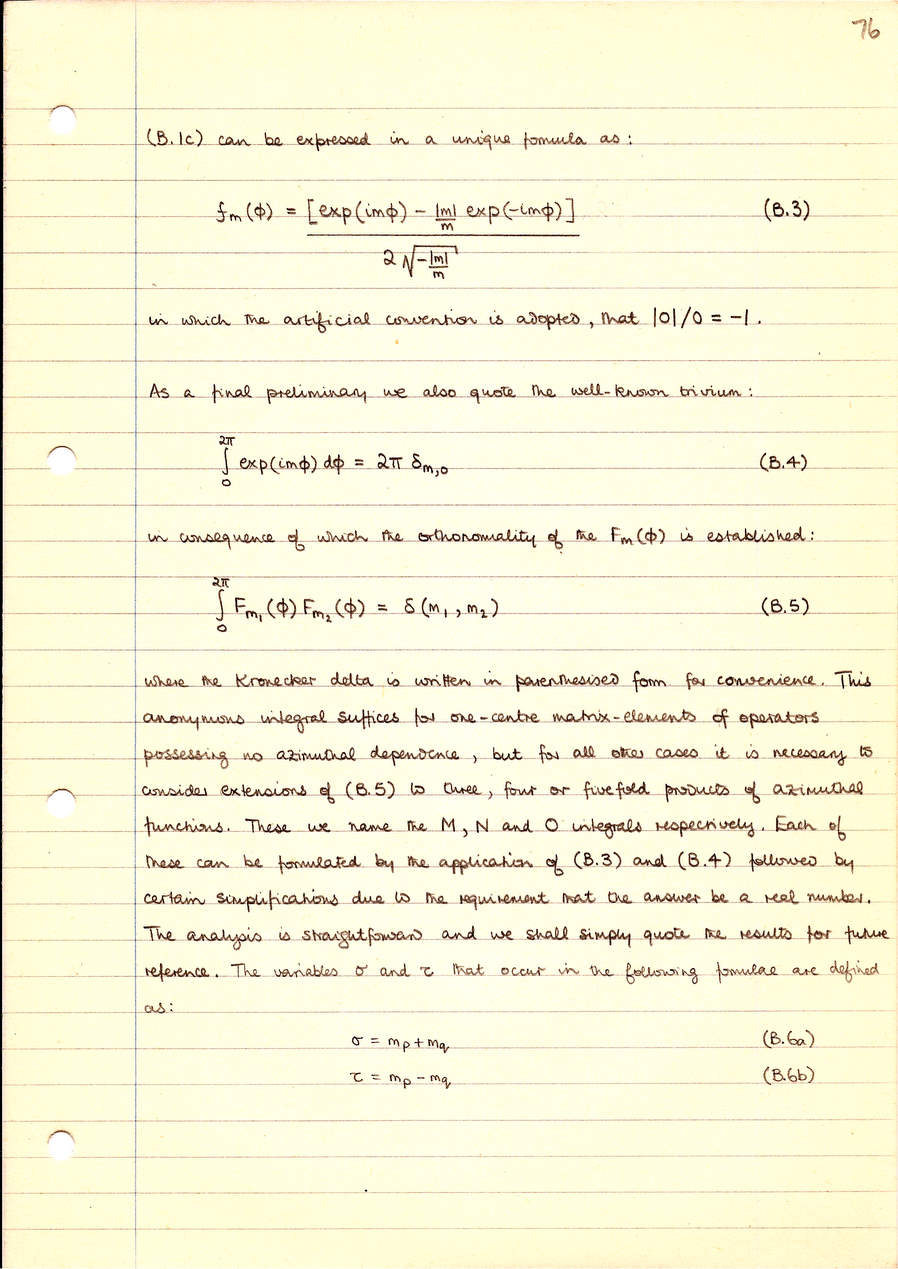 76
(B.1c) can be expressed in a unique formula as:
fm(φ) = [exp(imφ) − |m|/m exp(-imφ)] (B.3)
2 √−|m|/m
in which the artificial convention is adopted, that |0|/0 = −1.
As a final preliminary we also quote the well-known trivium:
∫₀²π exp(imφ) dφ = 2π δm,0 (B.4)
in consequence of which the orthonormality of the Fm(φ) is established:
∫₀²π Fm₁(φ) Fm₂(φ) = δ(m₁, m₂) (B.5)
where the Kronecker delta is written in parenthesised form for convenience. This
anonymous integral suffices for one-centre matrix-elements of operators
possessing no azimuthal dependence, but for all other cases it is necessary to
consider extensions of (B.5) to three, four or fivefold products of azimuthal
functions. These we name the M, N and O integrals respectively. Each of
these can be formulated by the application of (B.3) and (B.4) followed by
certain simplifications due to the requirement that the answer be a real number.
The analysis is straightforward and we shall simply quote the results for future
reference. The variables σ and τ that occur in the following formulae are defined
as:
σ = mp + mq (B.6a)
τ = mp − mq (B.6b)